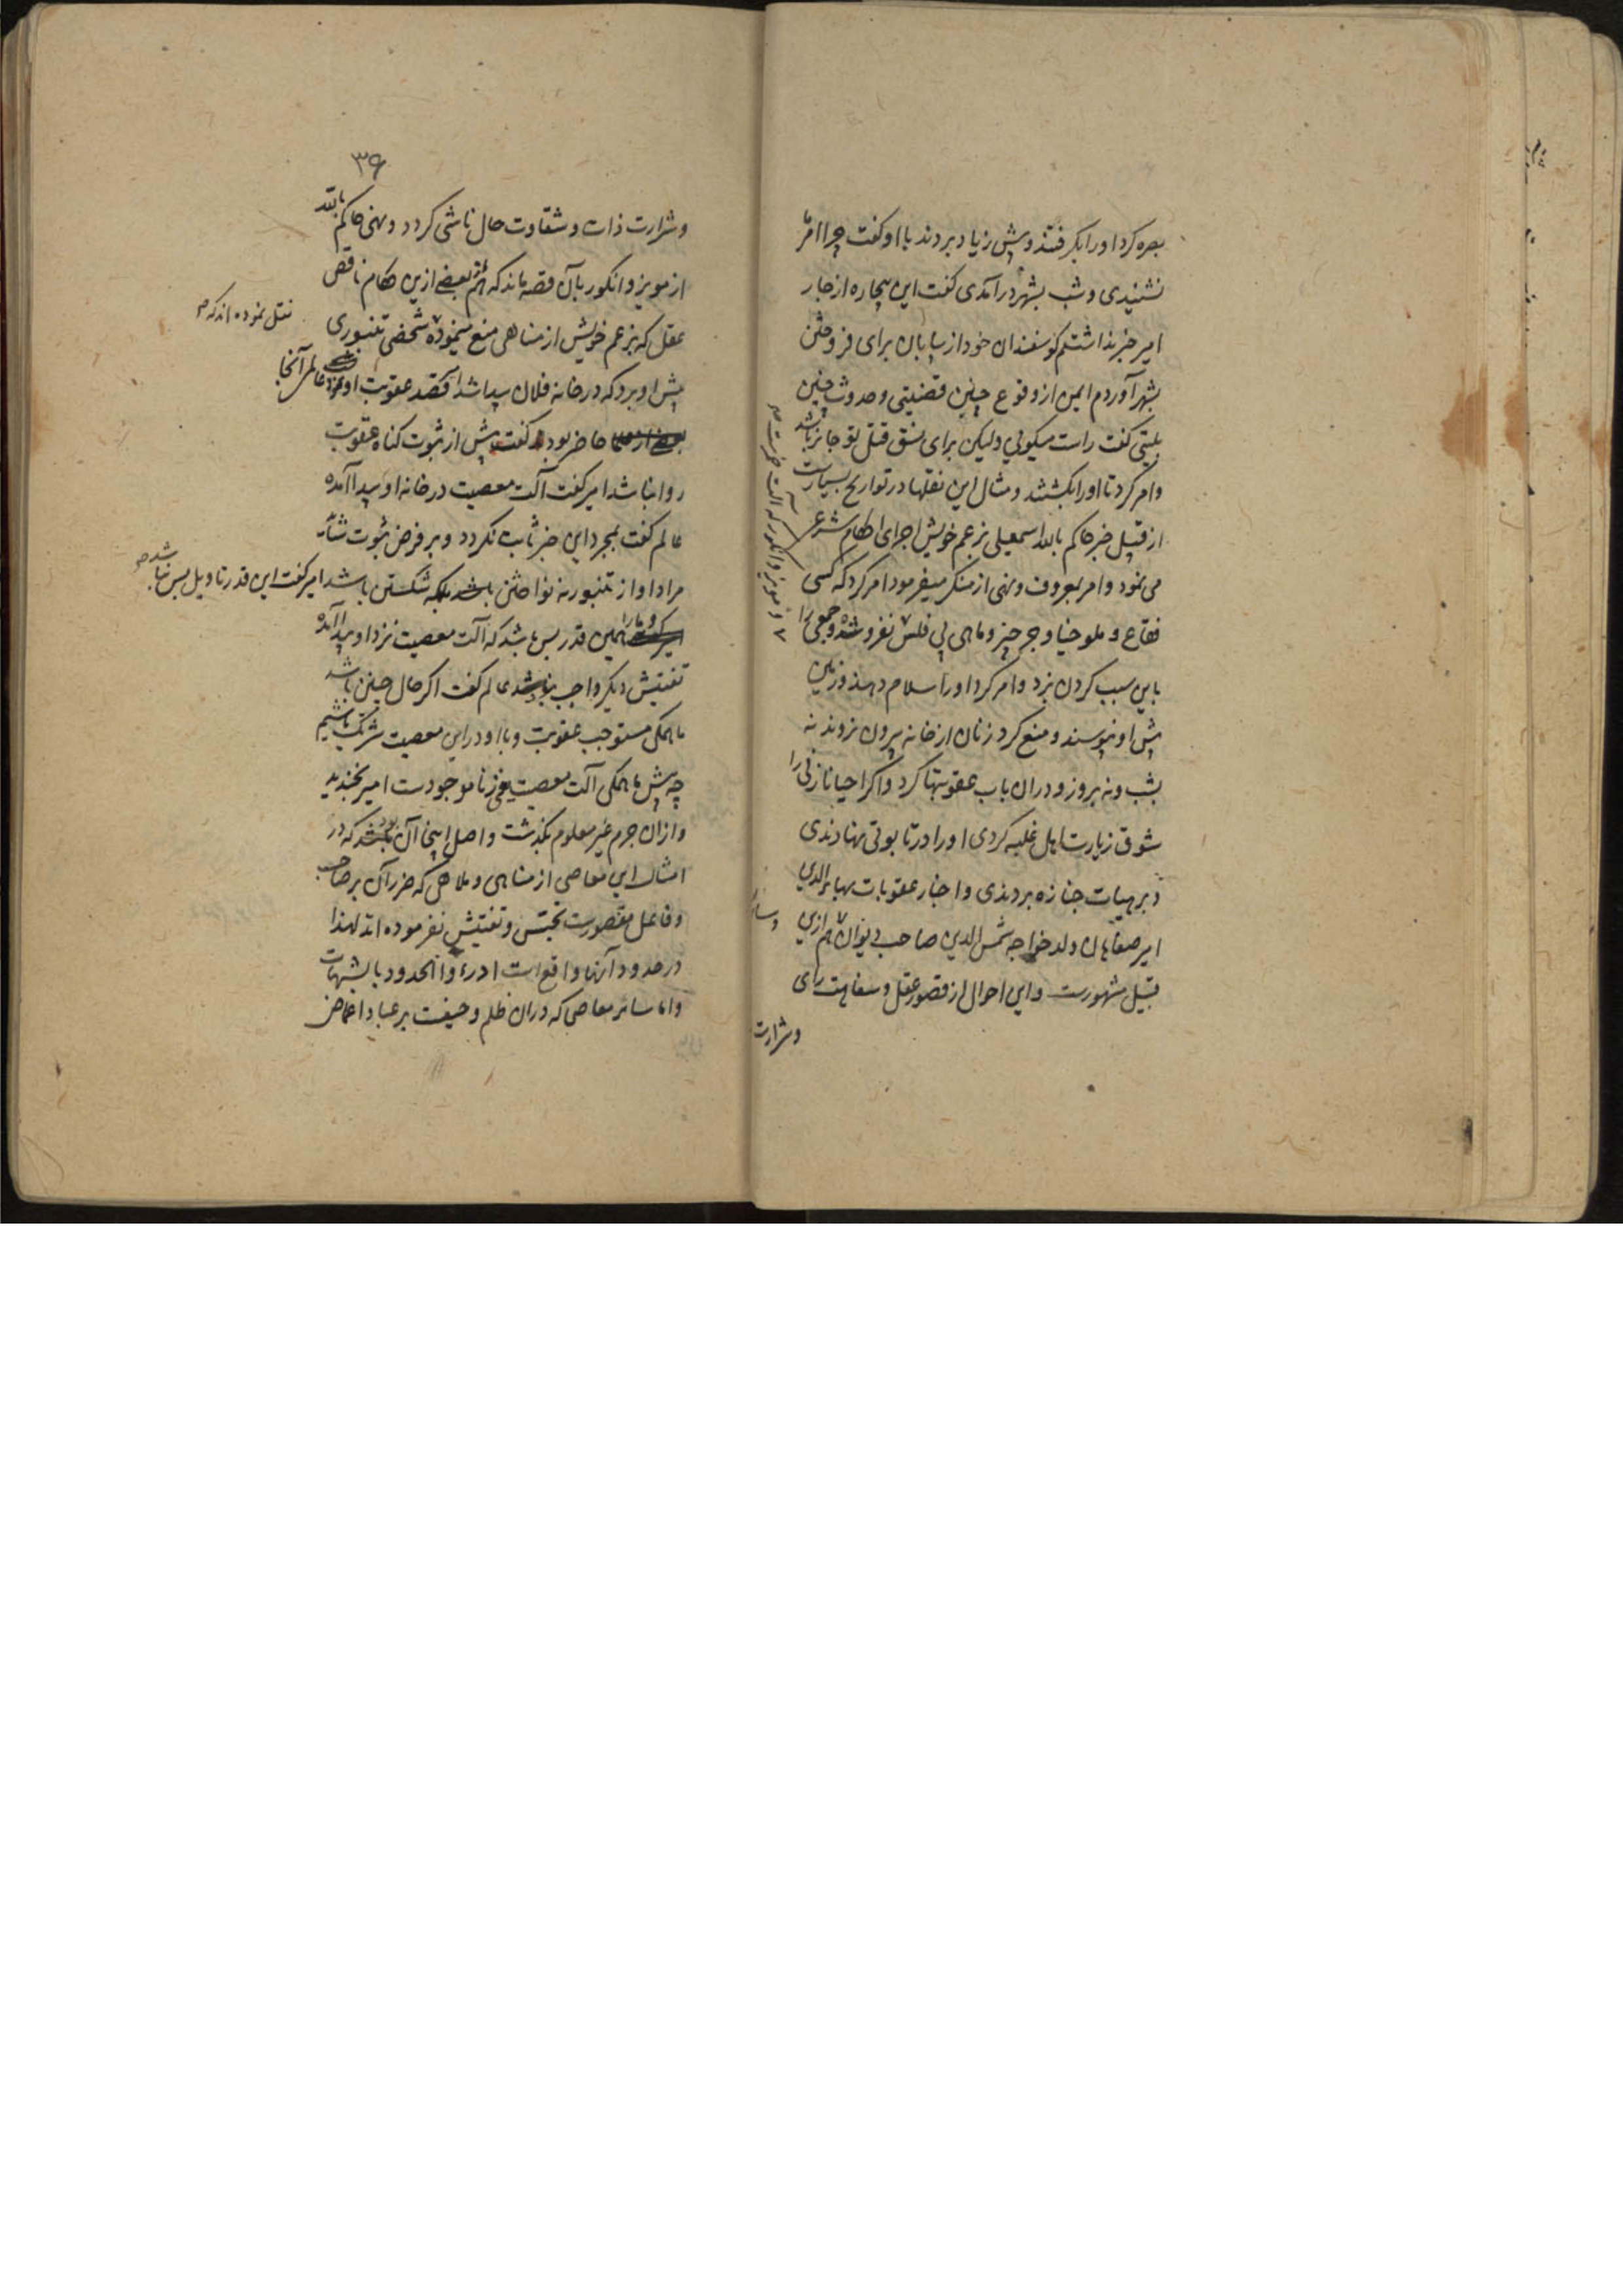 بصره کرد او را بگرفتند و پیش زیاد بردند با او گفت چرا امر ما
نشنیدی و شب بشهر درآمدی گفت این بیچاره از جار
امیر خبر نداشتم گوسفندان خود از بیابان برای فروختن
بشهر آوردم ایمن از وقوع چنین قضیتی و حدوث چنین
بلیتی گفت راست میکوئی ولیکن برای نسق قتل تو جایز باشد
و امر کرد تا او را بکشتند و مثال این نقلها در تواریخ بسیارست
از قبیل خبر حاکم بالله اسمعیلی بزعم خویش اجرای احکام شرع
می نمود و امر بمعروف و نهی از منکر میفرمود امر کرد که کسی
فقاع و ملوخیا و جرجیر و ماهی بی فلس نفروشد و جمعی را
باین سبب کردن بزد و امر کرد او را سلام دهند و زمین
پیش او نبوسند و منع کرد زنان از خانه بیرون نروند نه
بشب و نه بروز و دران باب عقوبتها کرد و اگر احیانا زنی را
شوق زیارت اهل غلبه کردی او را در تابوتی نهادندی
و بر هیات جنازه بردندی و اخبار عقوبات بهاء الدین
امیر صفاهان ولد خواجه شمس الدین صاحب دیوان هم ازین
قبیل مشهورست و این احوال از قصور عقل و سفاهت رای
و شرارت
و مویز و انگور که آلت خمرست
۳۹
و شرارت ذات و شقاوت حال ناشی گردد و نهی حاکم بالله
از مویز و انگور بآن قصه ماند که بعضی ازین حکام ناقص
نقل نموده اند که
عقل که بزعم خویش از مناهی منع مینموده شخصی تنبوری
پیش او برد که در خانه فلان پیدا شد قصد عقوبت او نمود عالمر آنجا
حاضر بود گفت پیش از ثبوت گناه عقوبت
روا نباشد امیر گفت آلت معصیت در خانه او پیدا آمده
عالم گفت بمجرد این خبر ثابت نگردد و بر فرض ثبوت شاید
مراد او از تنبور نه نواختن بلکه شکستن باشد امیر گفت این قدر تاویل بس نباشد
همین قدر بس باشد که آلت معصیت نزد او پیدا آمده
تفتیش دیگر واجب نباشد عالم گفت اگر حال چنین باشد
ما همگی مستوجب عقوبت و با او در این معصیت شریک باشیم
چه پیش ما همگی آلت معصیت یعنی زنا موجودست امیر بخندید
و ازان جرم غیر معلوم بگذشت و اصل اینجا آن بود که در
امثال این معاصی از مناهی و ملاهی که ضرر آن بر صاحب
و فاعل مقصورست تجسس و تفتیش نفرموده اند لهذا
در حدود آنها واقع است ادرءوا الحدود بالشبهات
و اما سایر معاصی که دران ظلم و حیف بر عباد